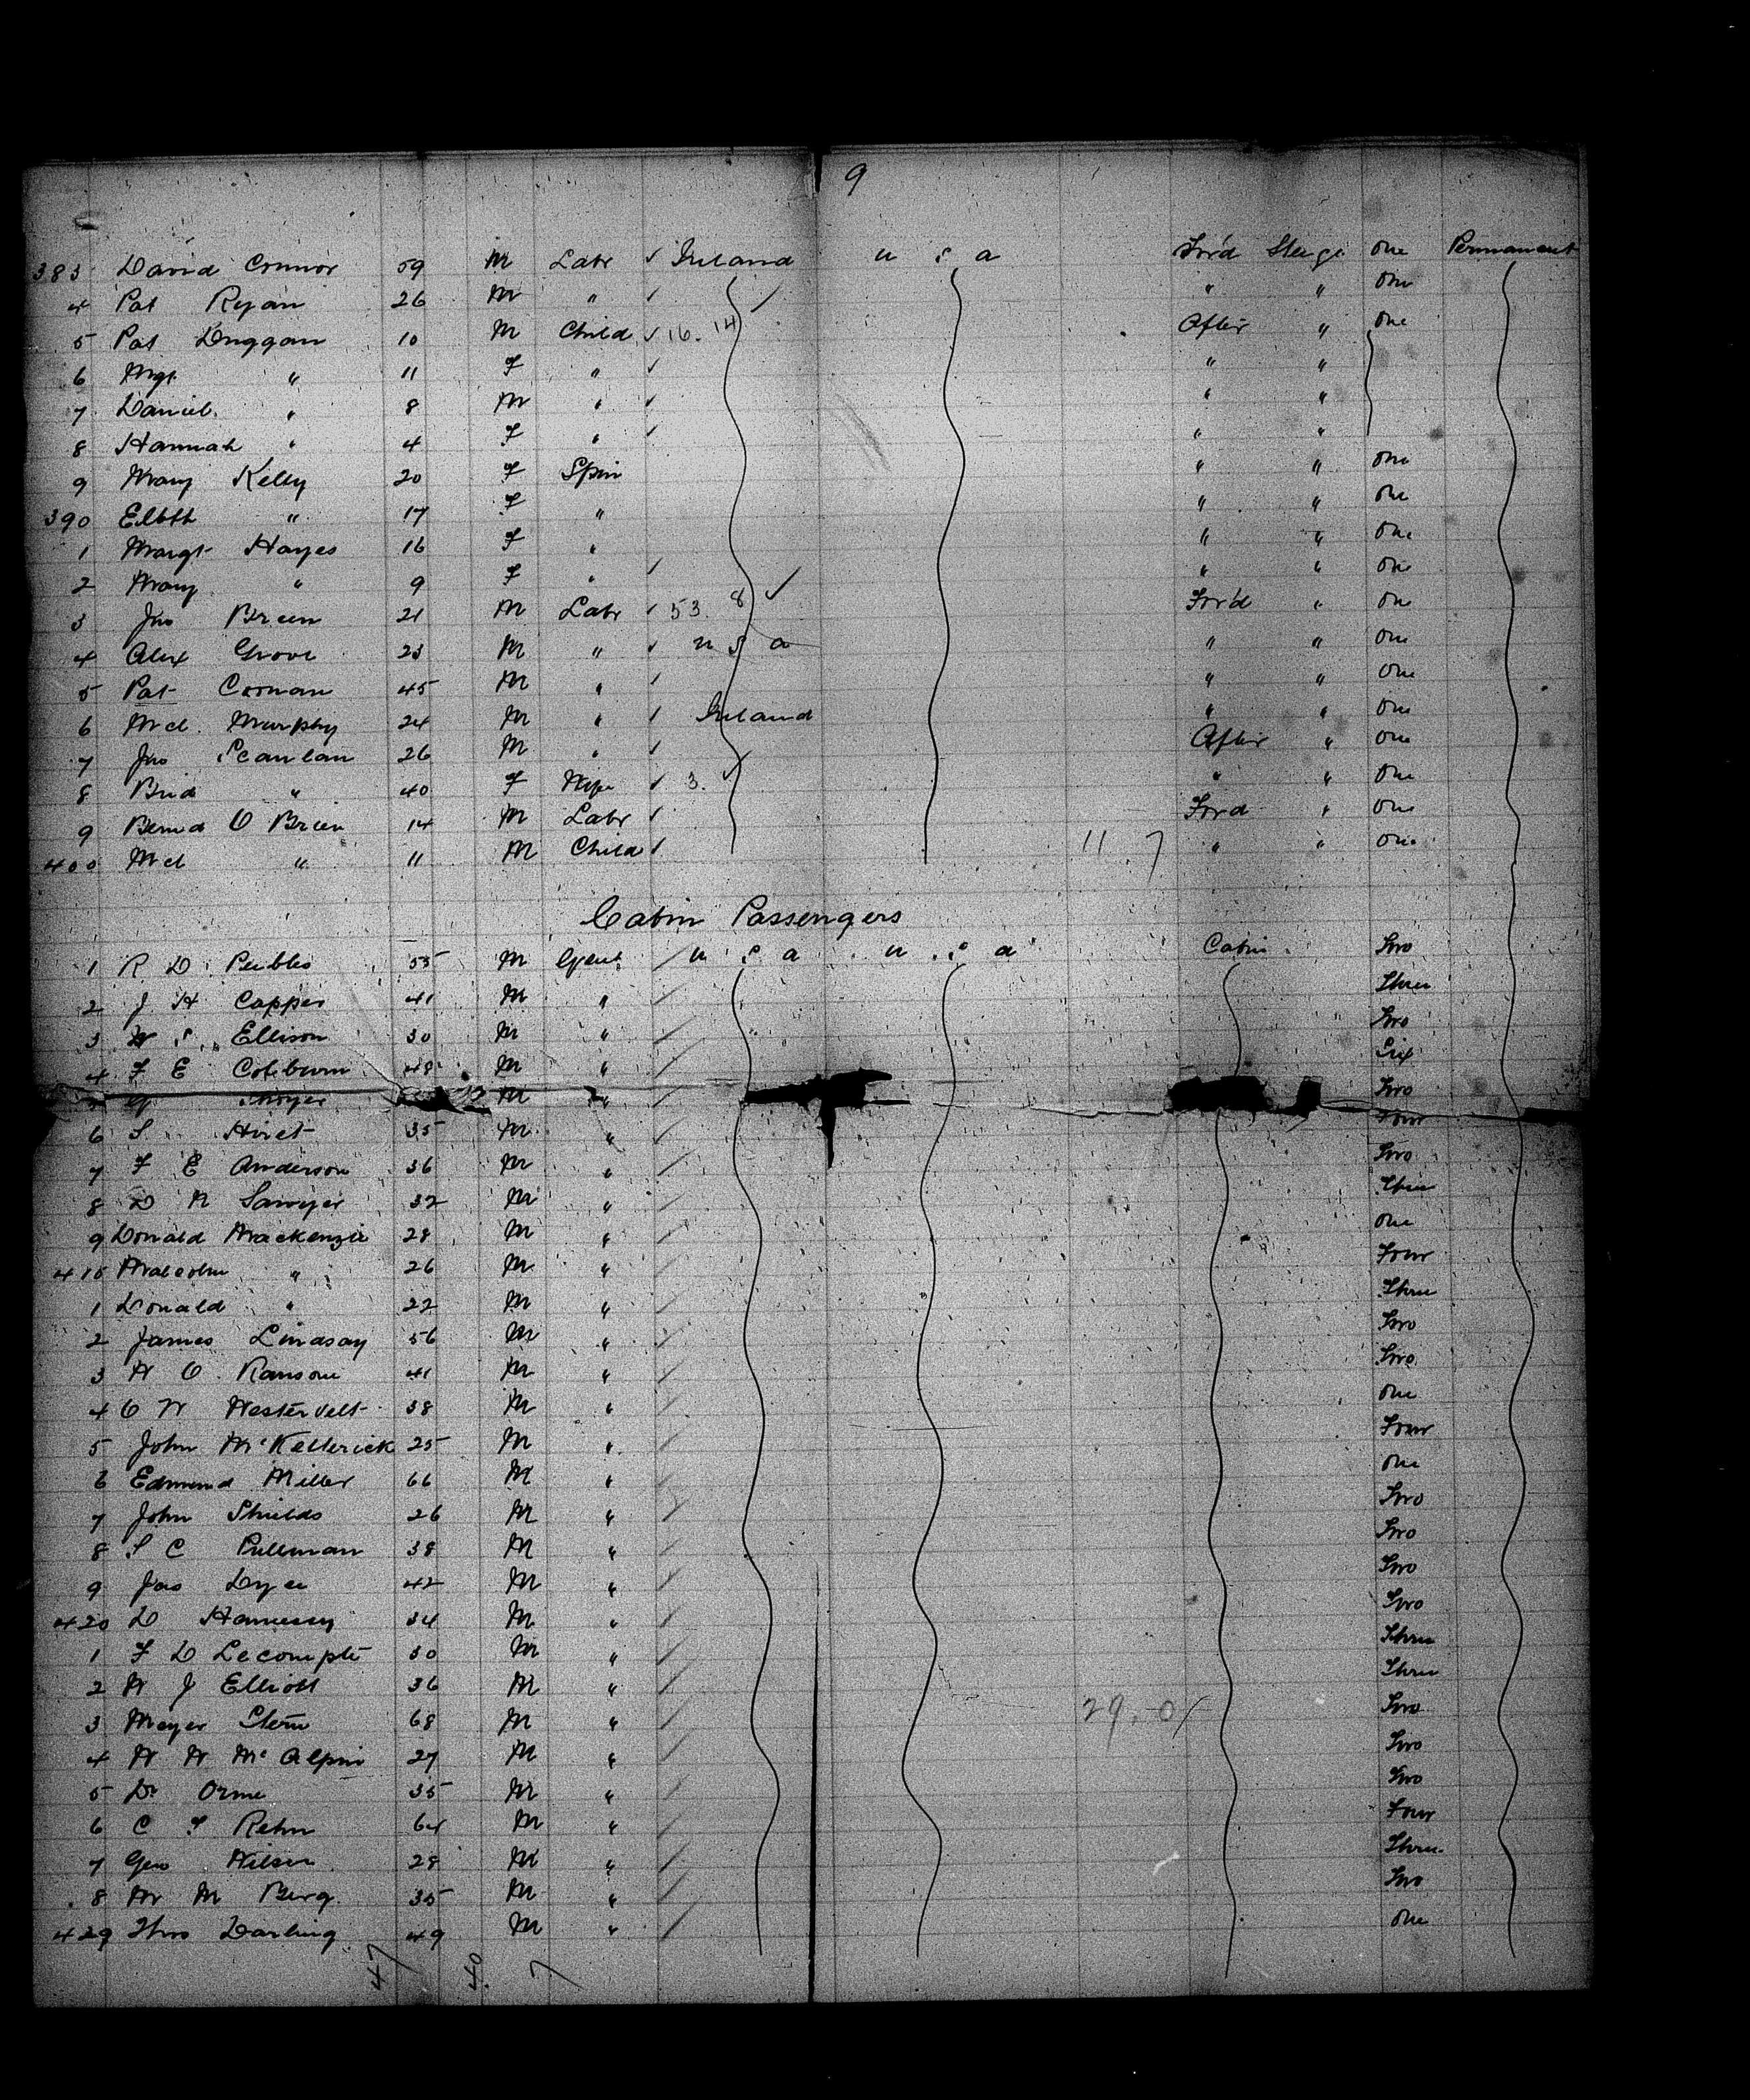 9
383 David Connor 59 M Labr ✓ Ireland U S A For'd Steerge One Permanent
4 Pat Ryan 26 M " ✓ ✓ " " One
5 Pat Duggan 10 M Child ✓ 16. 14 After " One
6 Mgt " 11 F " ✓ " "
7 Daniel " 8 M " ✓ " "
8 Hannah " 4 F " ✓ " "
9 Mary Kelly 20 F Spin " " One
390 Elbth " 17 F " " " One
1 Margt Hayes 16 F " " " One
2 Mary " 9 F " ✓ " " One
3 Jno Breen 21 M Labr ✓ 53. 8 ✓ For'd " One
4 Alex Grove 23 M " ✓ U S A " " One
5 Pat Coonan 45 M " ✓ " " One
6 Mcl. Murphy 24 M " ✓ Ireland " " One
7 Jno Scanlan 26 M " ✓ After " One
8 Brid " 40 F Wife ✓ 3. ✓ " " One
9 Bernd O Brien 14 M Labr ✓ Ford " One
400 Mcl " 11 M Child ✓ 11 7 " " One
Cabin Passengers
1 R D Peebles 55 M Gent. / U S A U S A Cabin Two
2 J H Copper 41 M " / Three
3 W S. Ellison 30 M " / Two
4 F E Coleburn 48 M " / Six
M " / Two
6 S Hirst 35 M " / Four
7 F E Anderson 36 M " / Two
8 D N Sawyer 32 M " / Three
9 Donald Mackenzie 28 M " / One
410 Malcolm " 26 M " / Four
1 Donald " 22 M " / Three
2 James Lindsay 56 M " / Two
3 W O. Ransom 41 M " / Two
4 O W Westervelt 38 M " / One
5 John McKellerick 25 M " / Four
6 Edmund Miller 66 M " / One
7 John Shields 26 M " / Two
8 S C Pullman 38 M " / Two
9 Jas Dyce 42 M " / Two
420 D Hannessy 34 M " / Two
1 F D Lecompte 30 M " / Three
2 W J Elliott 36 M " / Three
3 Meyer Stern 68 M " / 29. 0 / Two
4 W W McAlpin 27 M " / Two
5 Dr Orme 35 M " / Two
6 C F Rehn 64 M " / Four
7 Geo Wilson 28 M " / Three
8 Mr M Berg. 35 M " / Two
429 Thos Darling 49 M " / One
47 40. 7